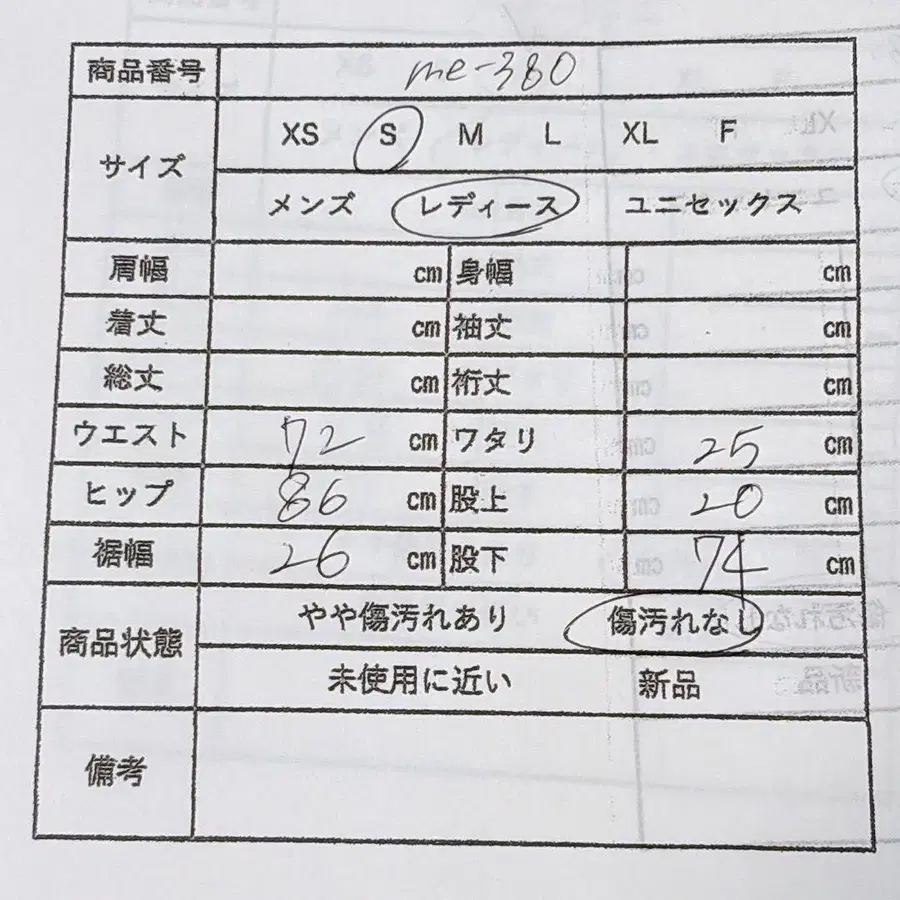 商品番号 me-380
サイズ XS S M L XL F
メンズ レディース ユニセックス
肩幅 cm 身幅 cm
着丈 cm 袖丈 cm
総丈 cm 裄丈 cm
ウエスト 72 cm ワタリ 25 cm
ヒップ 86 cm 股上 20 cm
裾幅 26 cm 股下 74 cm
商品状態 やや傷汚れあり 傷汚れなし
未使用に近い 新品
備考